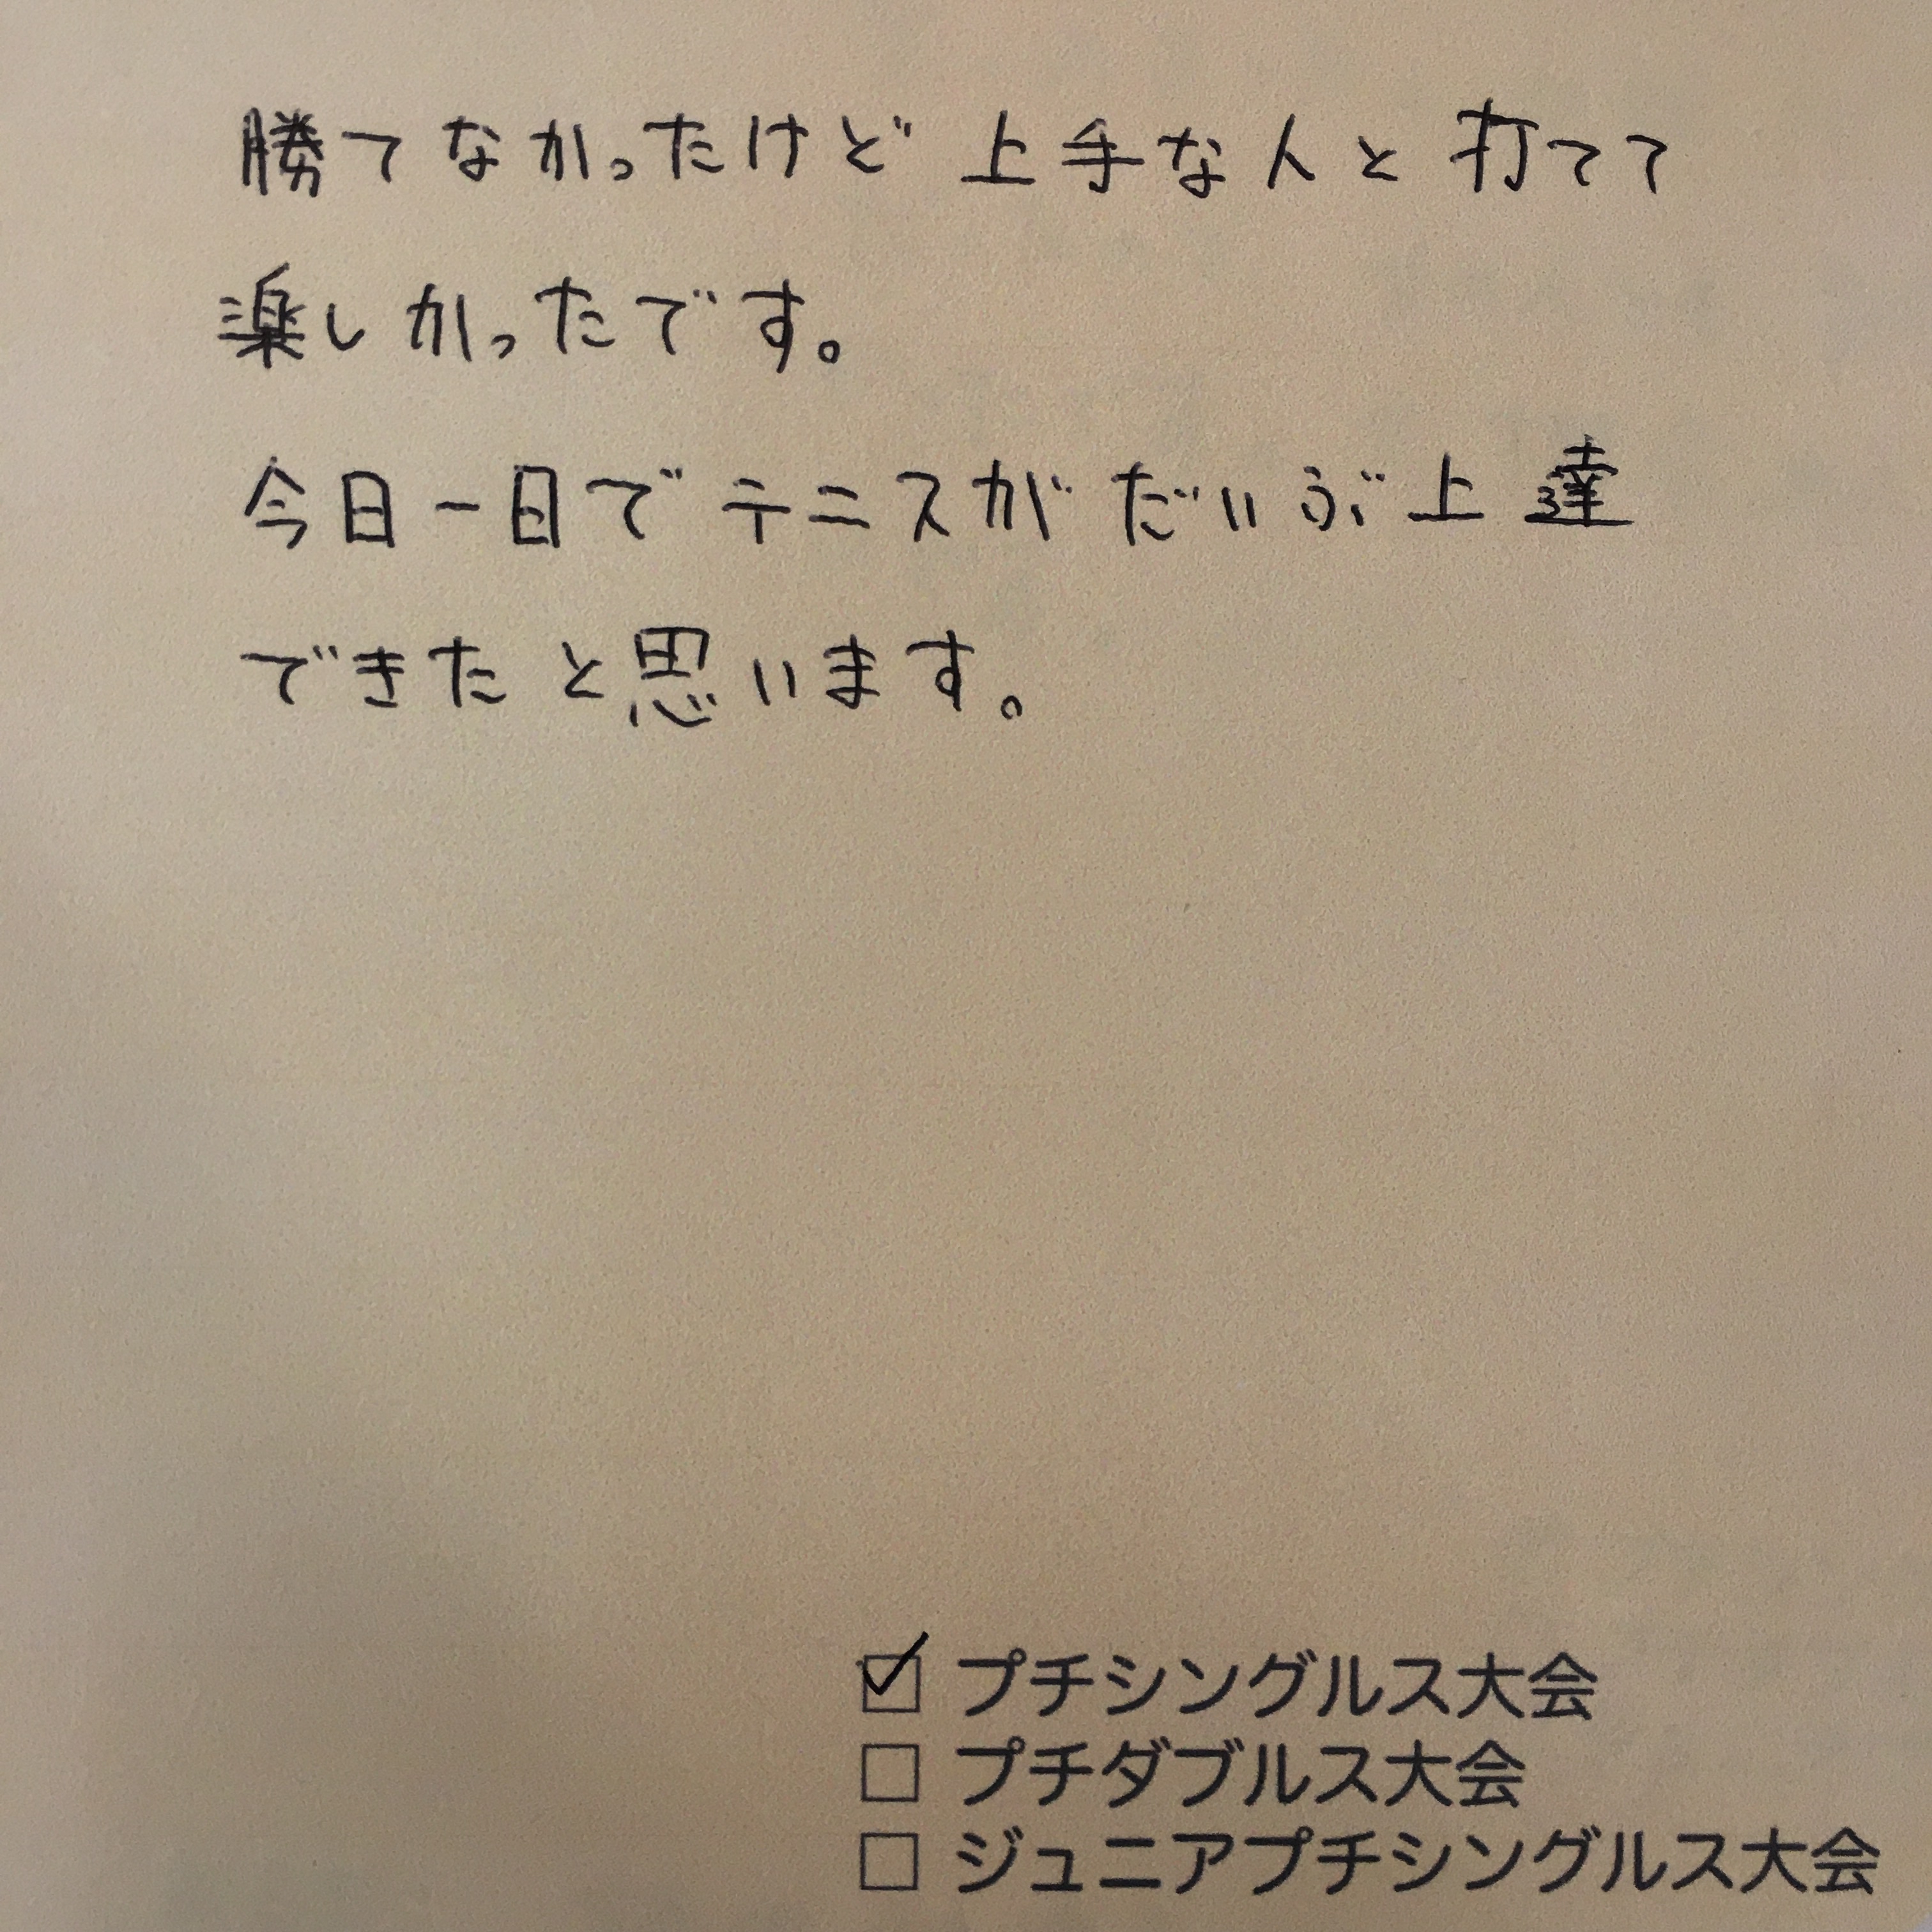 勝てなかったけど上手な人と打てて
楽しかったです。
今日一日でテニスがだいぶ上達
できたと思います。
☑ プチシングルス大会
☐ プチダブルス大会
☐ ジュニアプチシングルス大会